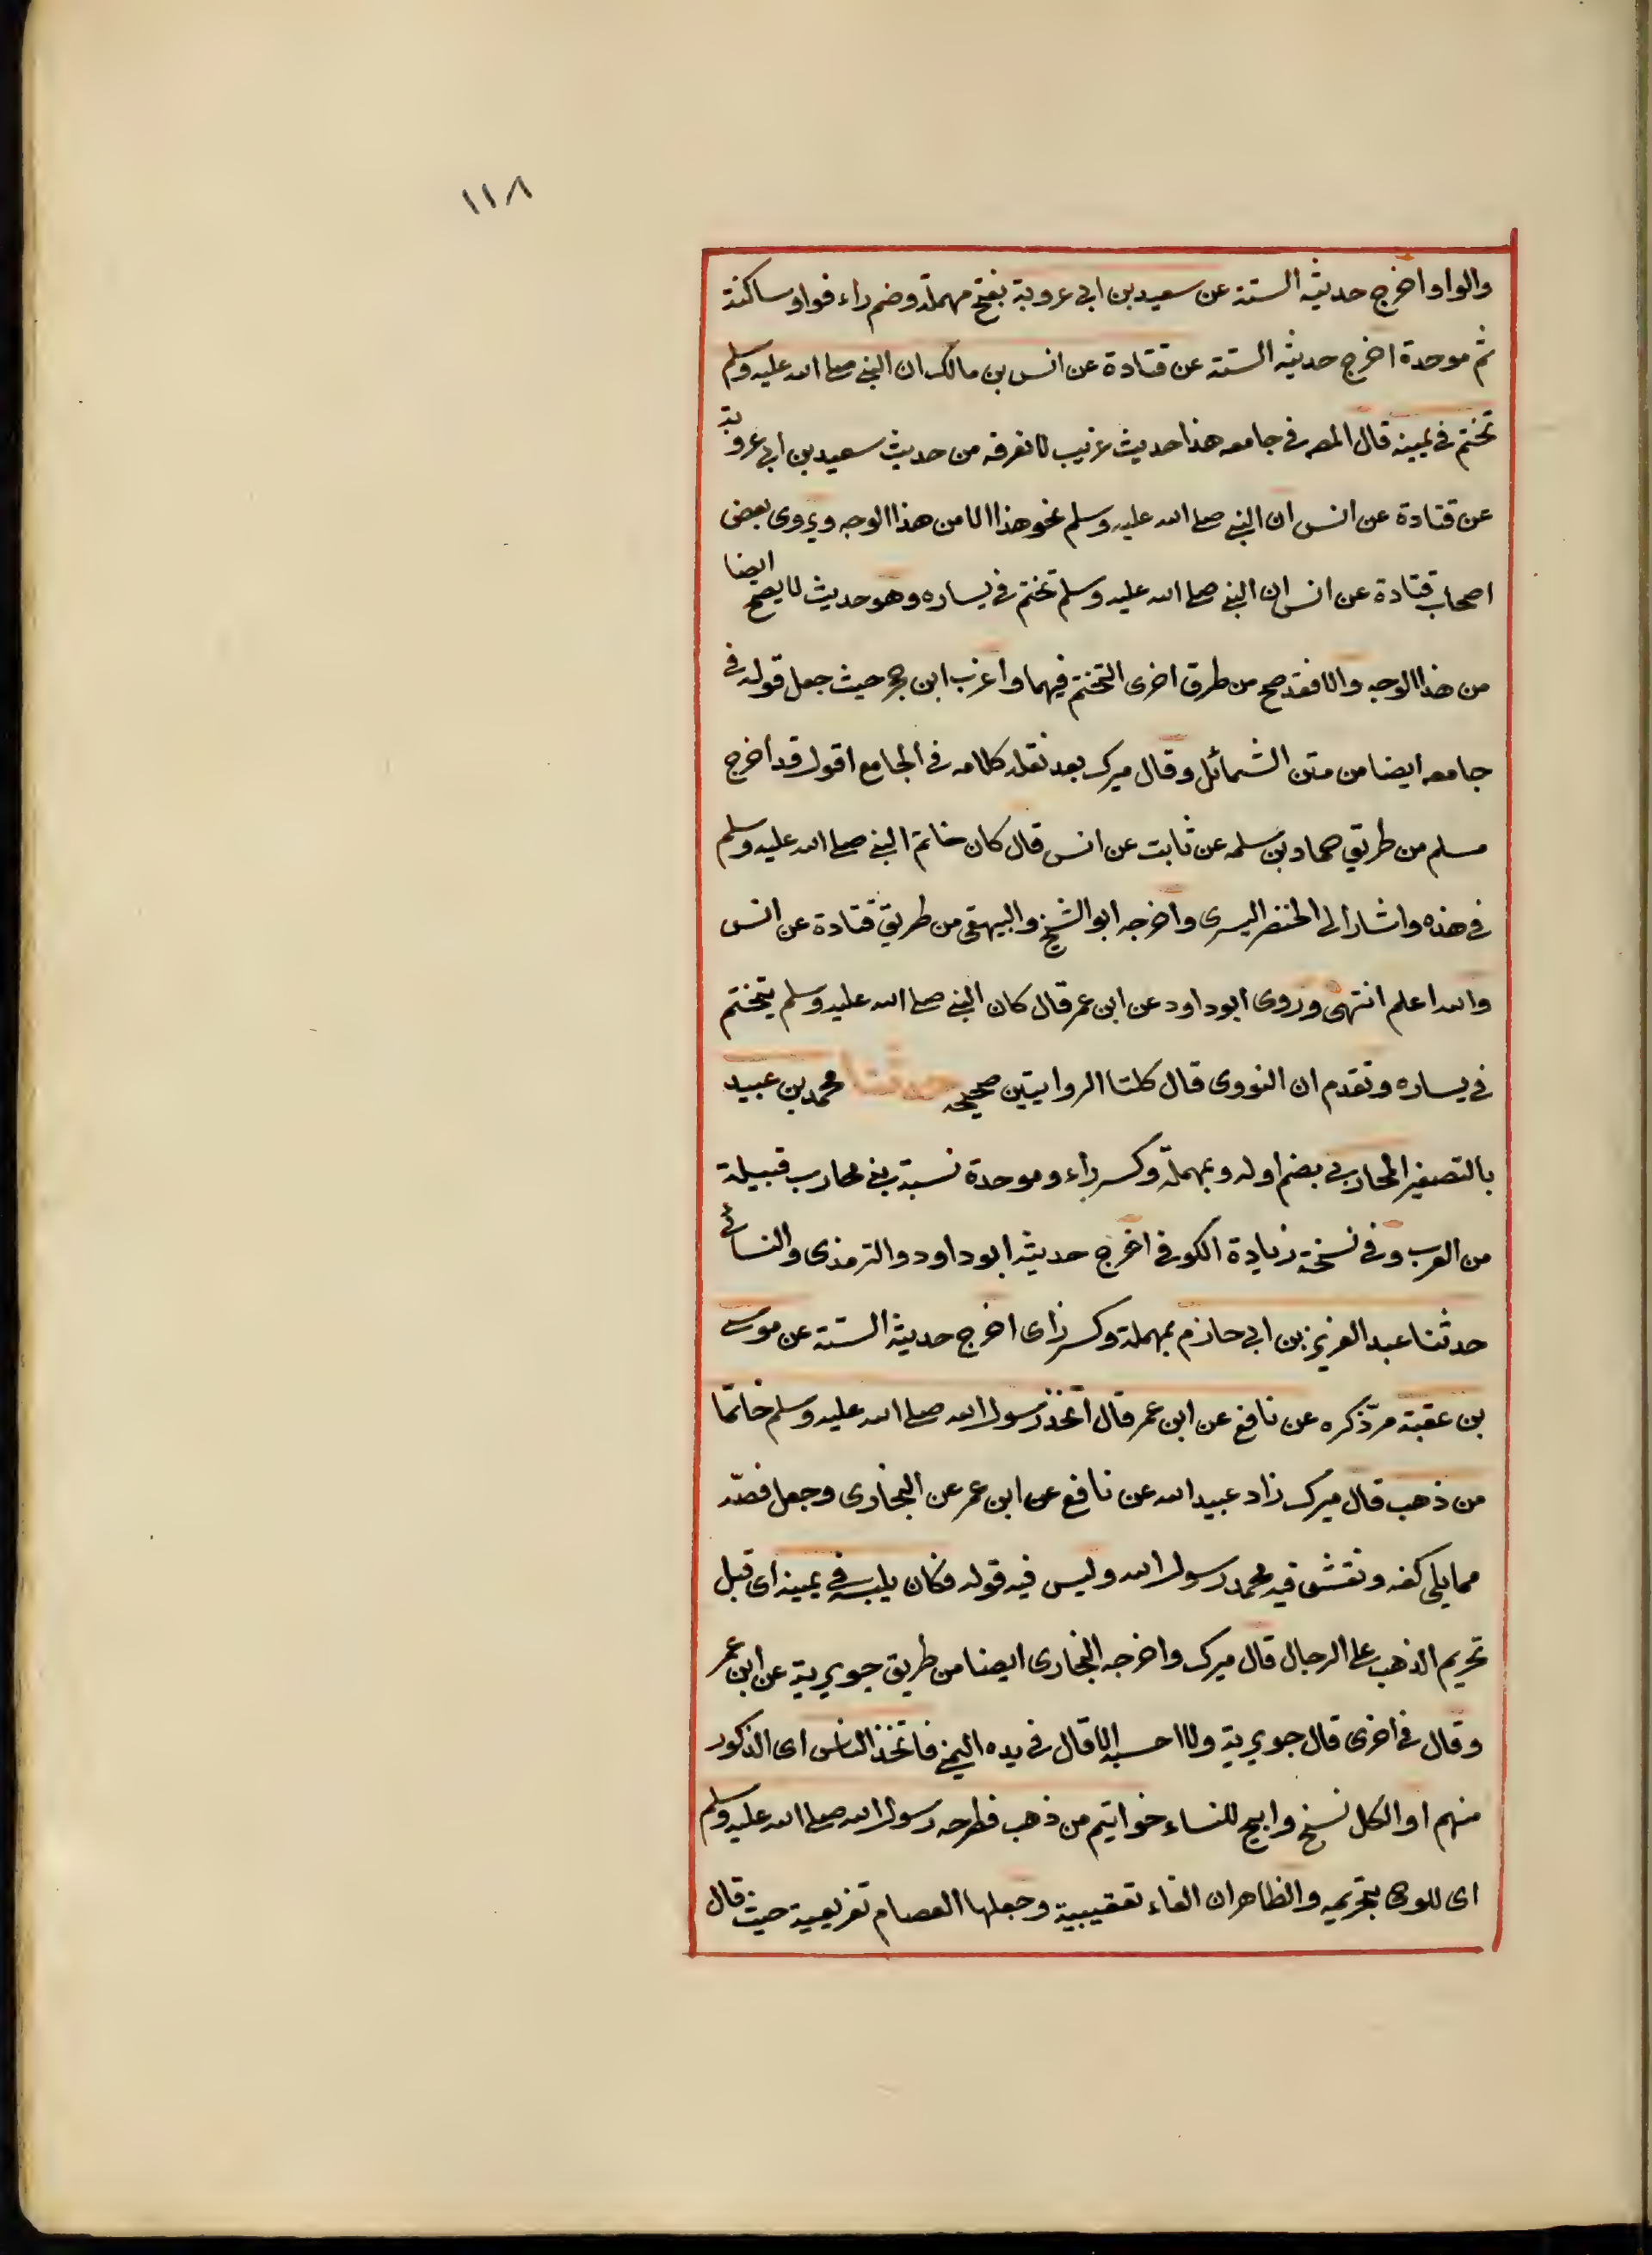 ١١٨
والواو اخرج حديثه الستة عن سعيد بن ابي عروبة بفتح مهملة وضم راء فواو ساكنة
ثم موحدة اخرج حديثه الستة عن قتادة عن انس بن مالك ان النبي صلى الله عليه وسلم
تختم في يمينه قال المصر في جامعه هذا حديث غريب لا نعرفه من حديث سعيد بن ابي عروبة
عن قتادة عن انس ان النبي صلى الله عليه وسلم نحو هذا الا من هذا الوجه وروى بعض
اصحاب قتادة عن انس ان النبي صلى الله عليه وسلم تختم في يساره وهو حديث لا يصح ايضا
من هذا الوجه والا فقد صح من طرق اخرى التختم فيهما واغرب ابن حجر حيث جعل قوله في
جامعه ايضا من متن الشمائل وقال ميرك بعد نقله كلامه في الجامع اقول قد اخرج
مسلم من طريق حماد بن سلمه عن ثابت عن انس قال كان خاتم النبي صلى الله عليه وسلم
في هذه واشار الى الخنصر اليسرى واخرجه ابو الشيخ والبيهقي من طريق قتادة عن انس
والله اعلم انتهى وروى ابو داود عن ابن عمر قال كان النبي صلى الله عليه وسلم يتختم
في يساره وتقدم ان النووى قال كلتا الروايتين صحيحه حدثنا محمد بن عبيد
بالتصغير المحاربي بضم اوله وبمهملة وكسر راء وموحدة نسبة بني محارب قبيلة
من العرب وفي نسخة زيادة الكوفي اخرج حديثه ابو داود والترمذى والنسائي
حدثنا عبد العزيز بن ابي حازم بمهملة وكسر زاى اخرج حديثه الستة عن موسى
بن عقبة مرّ ذكره عن نافع عن ابن عمر قال اتخذ رسول الله صلى الله عليه وسلم خاتمًا
من ذهب قال ميرك زاد عبيد الله عن نافع عن ابن عمر عن البخارى وجعل فصّه
مما يلى كفه ونقش فيه محمد رسول الله وليس فيه قوله فكان يلبسه في يمينه اى قبل
تحريم الذهب على الرجال قال ميرك واخرجه البخارى ايضا من طريق جويرية عن ابن عمر
وقال في اخرى قال جويرية ولا احسبه الا قال في يده اليمنى فاتخذ الناس اى الذكور
منهم او الكل نسخ وابيح للنساء خواتيم من ذهب فطرحه رسول الله صلى الله عليه وسلم
اى للوحى بتحريمه والظاهر ان الفاء تعقيبية وجعلها العصام تفريعية حيث قال